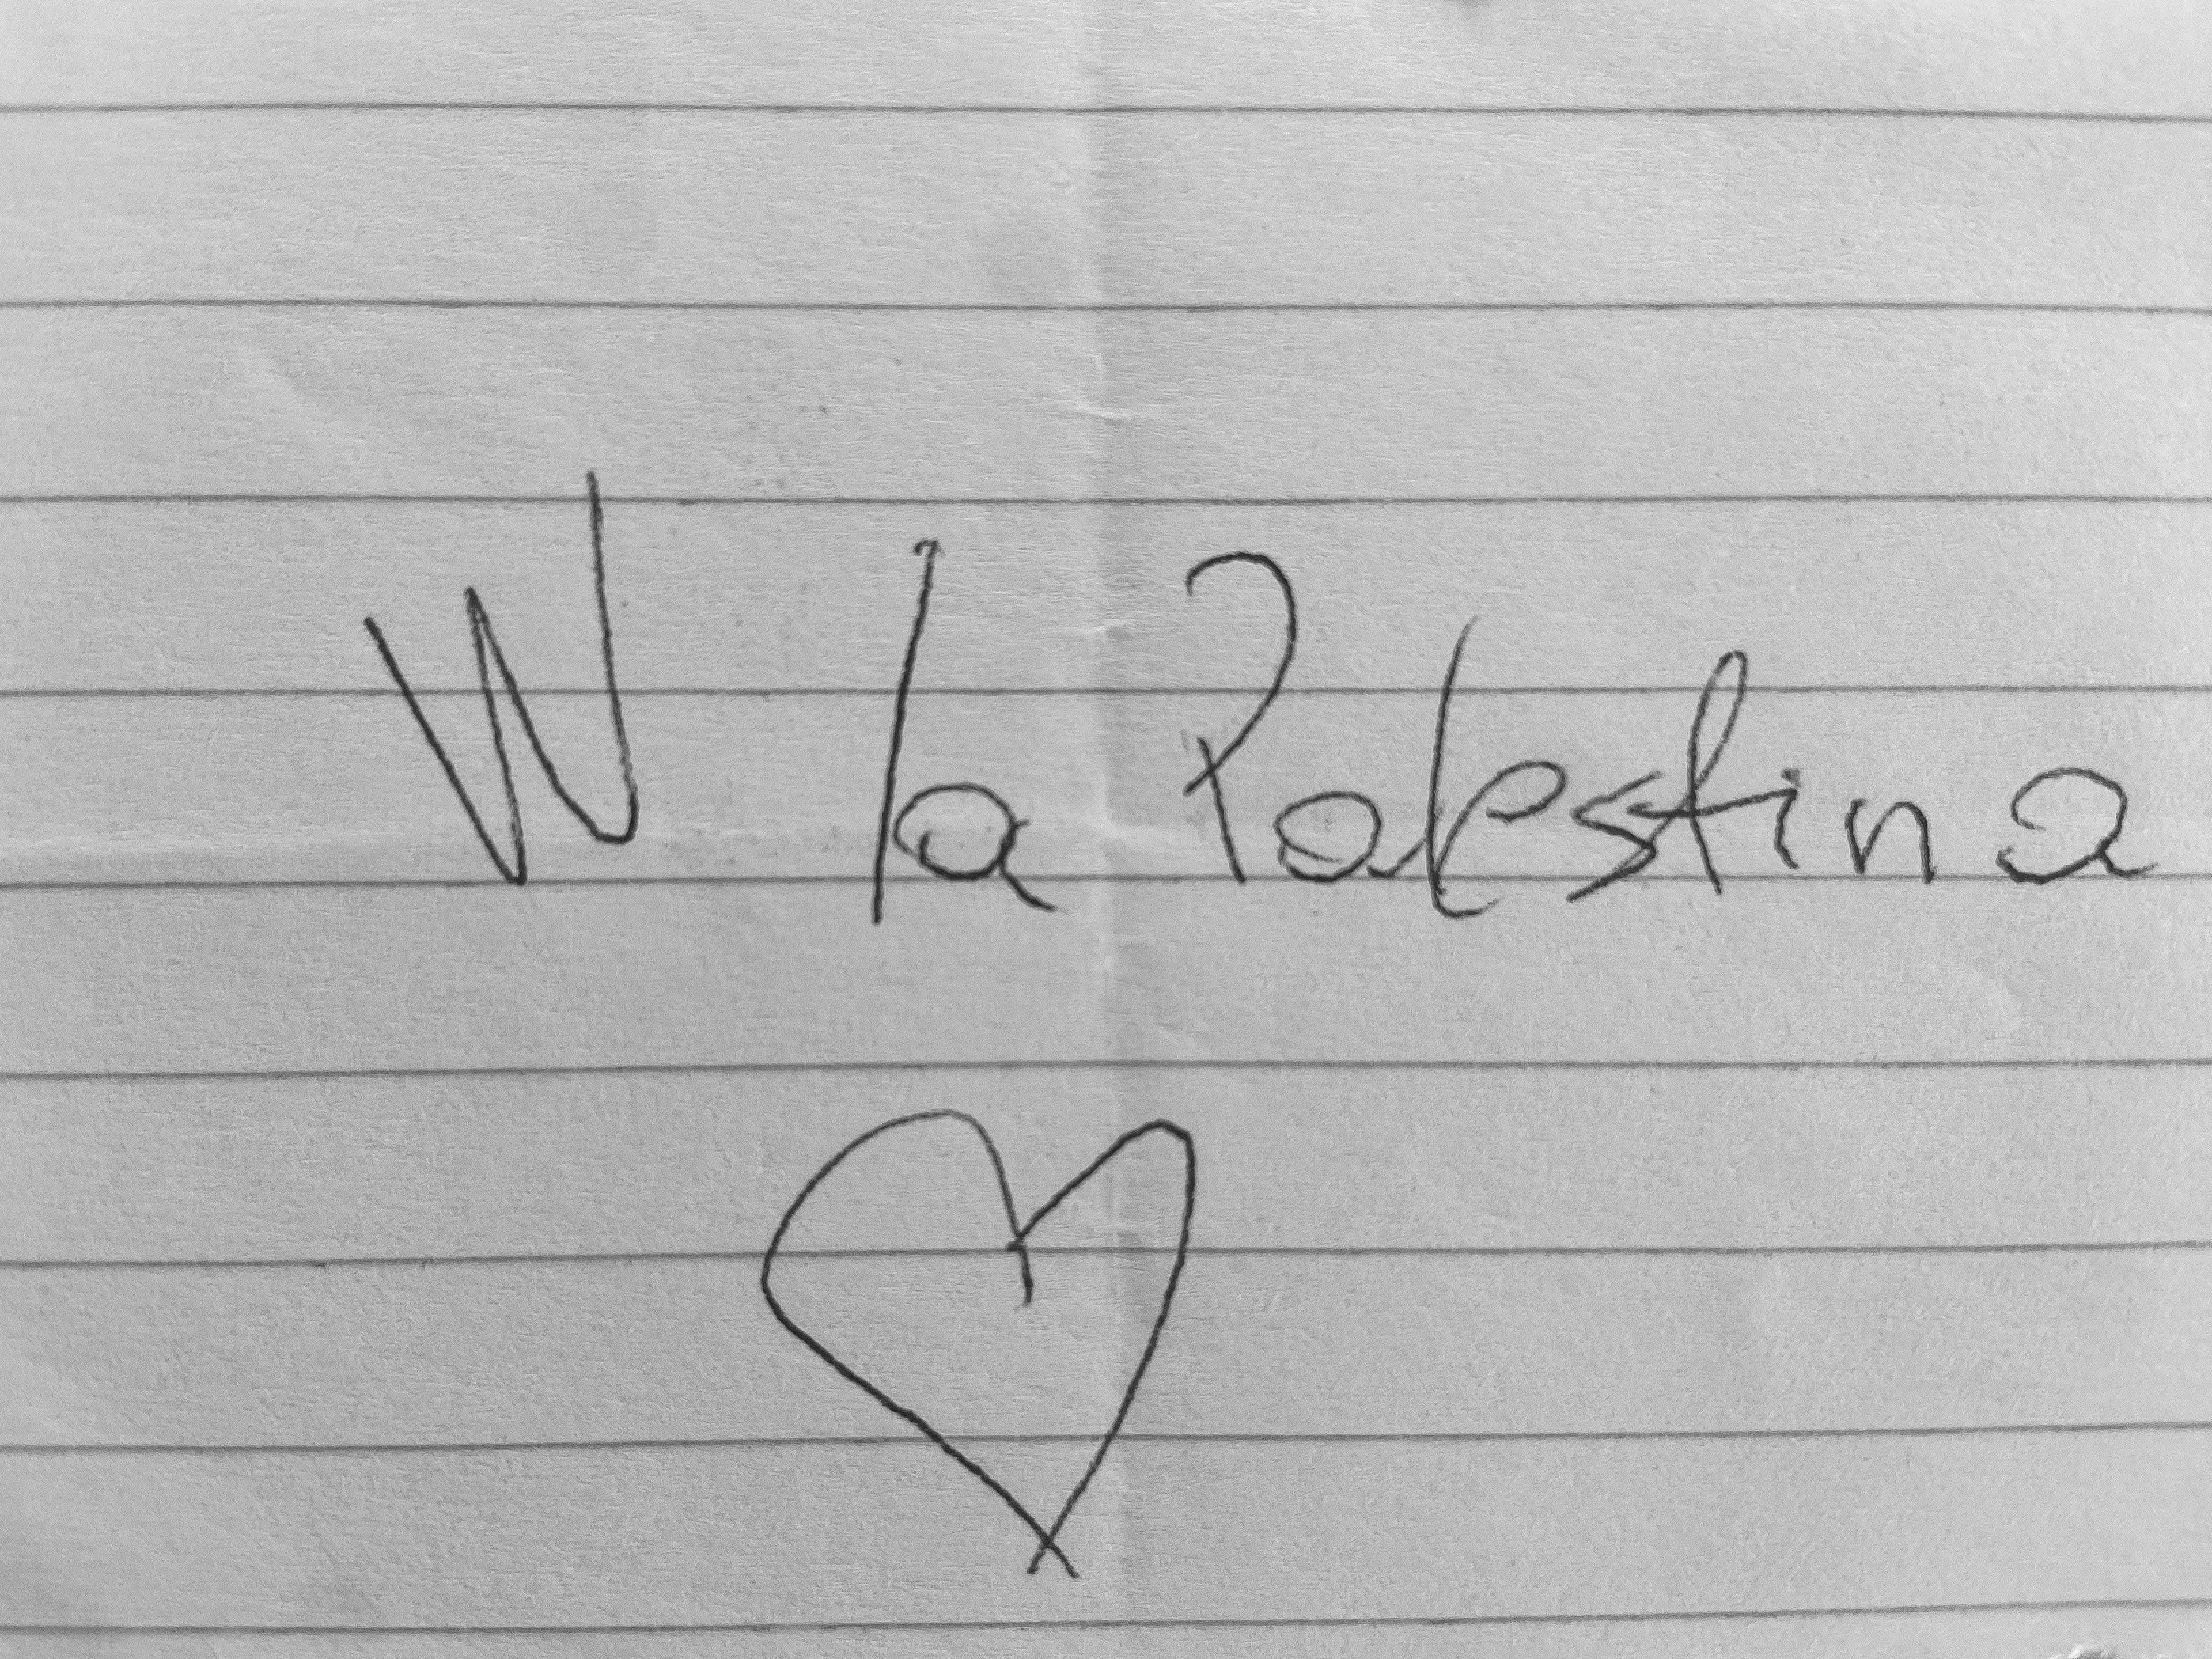 W la Palestina